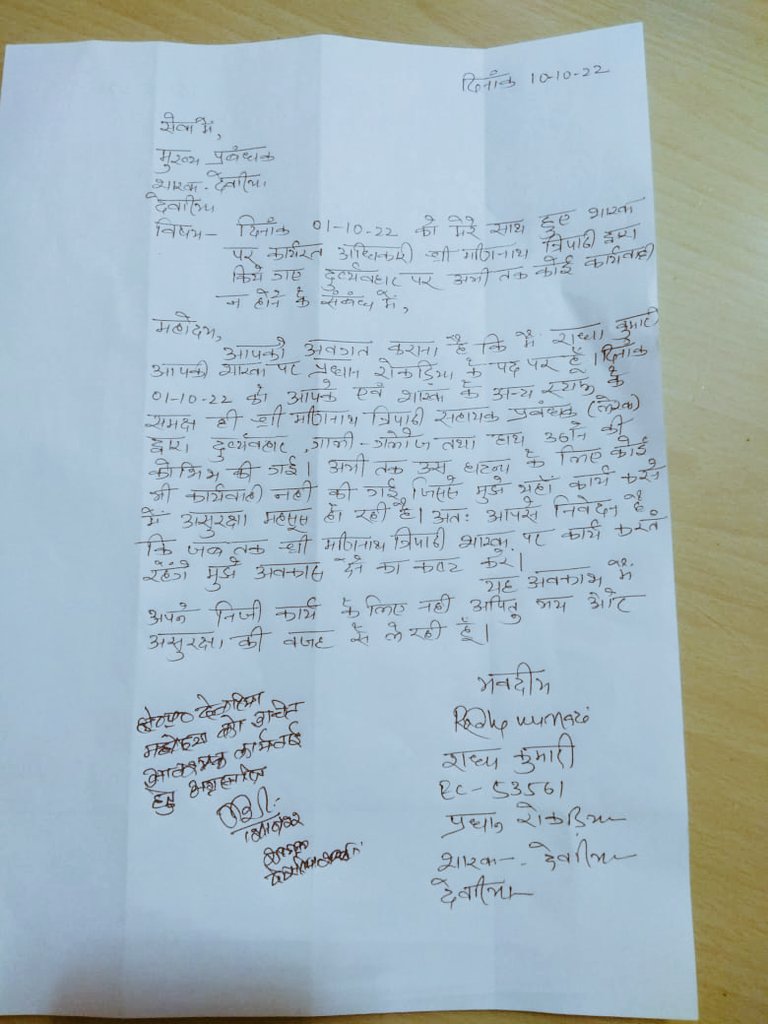 दिनाँक 10-10-22
सेवा में,
मुख्य प्रबंधक
शाखा- देवरिया
देवरिया
विषय- दिनाँक 01-10-22 को मेरे साथ हुए शाखा
पर कार्यरत अधिकारी श्री मणिनाथ त्रिपाठी द्वारा
किये गए दुर्व्यवहार पर अभी तक कोई कार्यवाही
न होने के संबंध में,
महोदय,
आपको अवगत कराना है कि मैं राधा कुमारी
आपकी शाखा पर प्रधान रोकड़िया के पद पर हूँ। दिनांक
01-10-22 को आपके एवं शाखा के अन्य स्टाफ के
समक्ष ही श्री मणिनाथ त्रिपाठी सहायक प्रबंधक (लेखा)
द्वारा दुर्व्यवहार, गाली-गलौज तथा हाथ उठाने की
कोशिश की गई। अभी तक उस घटना के लिए कोई
भी कार्यवाही नहीं की गई जिससे मुझे यहाँ कार्य करने
में असुरक्षा महसूस हो रही है। अतः आपसे निवेदन है
कि जब तक श्री मणिनाथ त्रिपाठी शाखा पर कार्य करते
रहेंगे मुझे अवकास देने का कष्ट करें।
यह अवकाश मैं
अपने निजी कार्य के लिए नही अपितु भय और
असुरक्षा की वजह से ले रही हूँ।
भवदीय
Radha kumari
राधा कुमारी
EC-53561
प्रधान रोकड़िया
शाखा- देवरिया
देवरिया
क्षे०का० देवरिया
महोदय को उचित
आवश्यक कार्यवाई
हेतु अग्रसारित